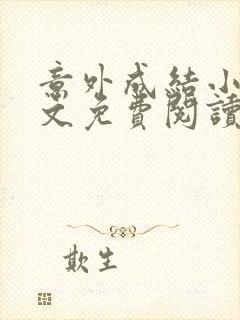 意外成結小
文免費閱讀
欺生